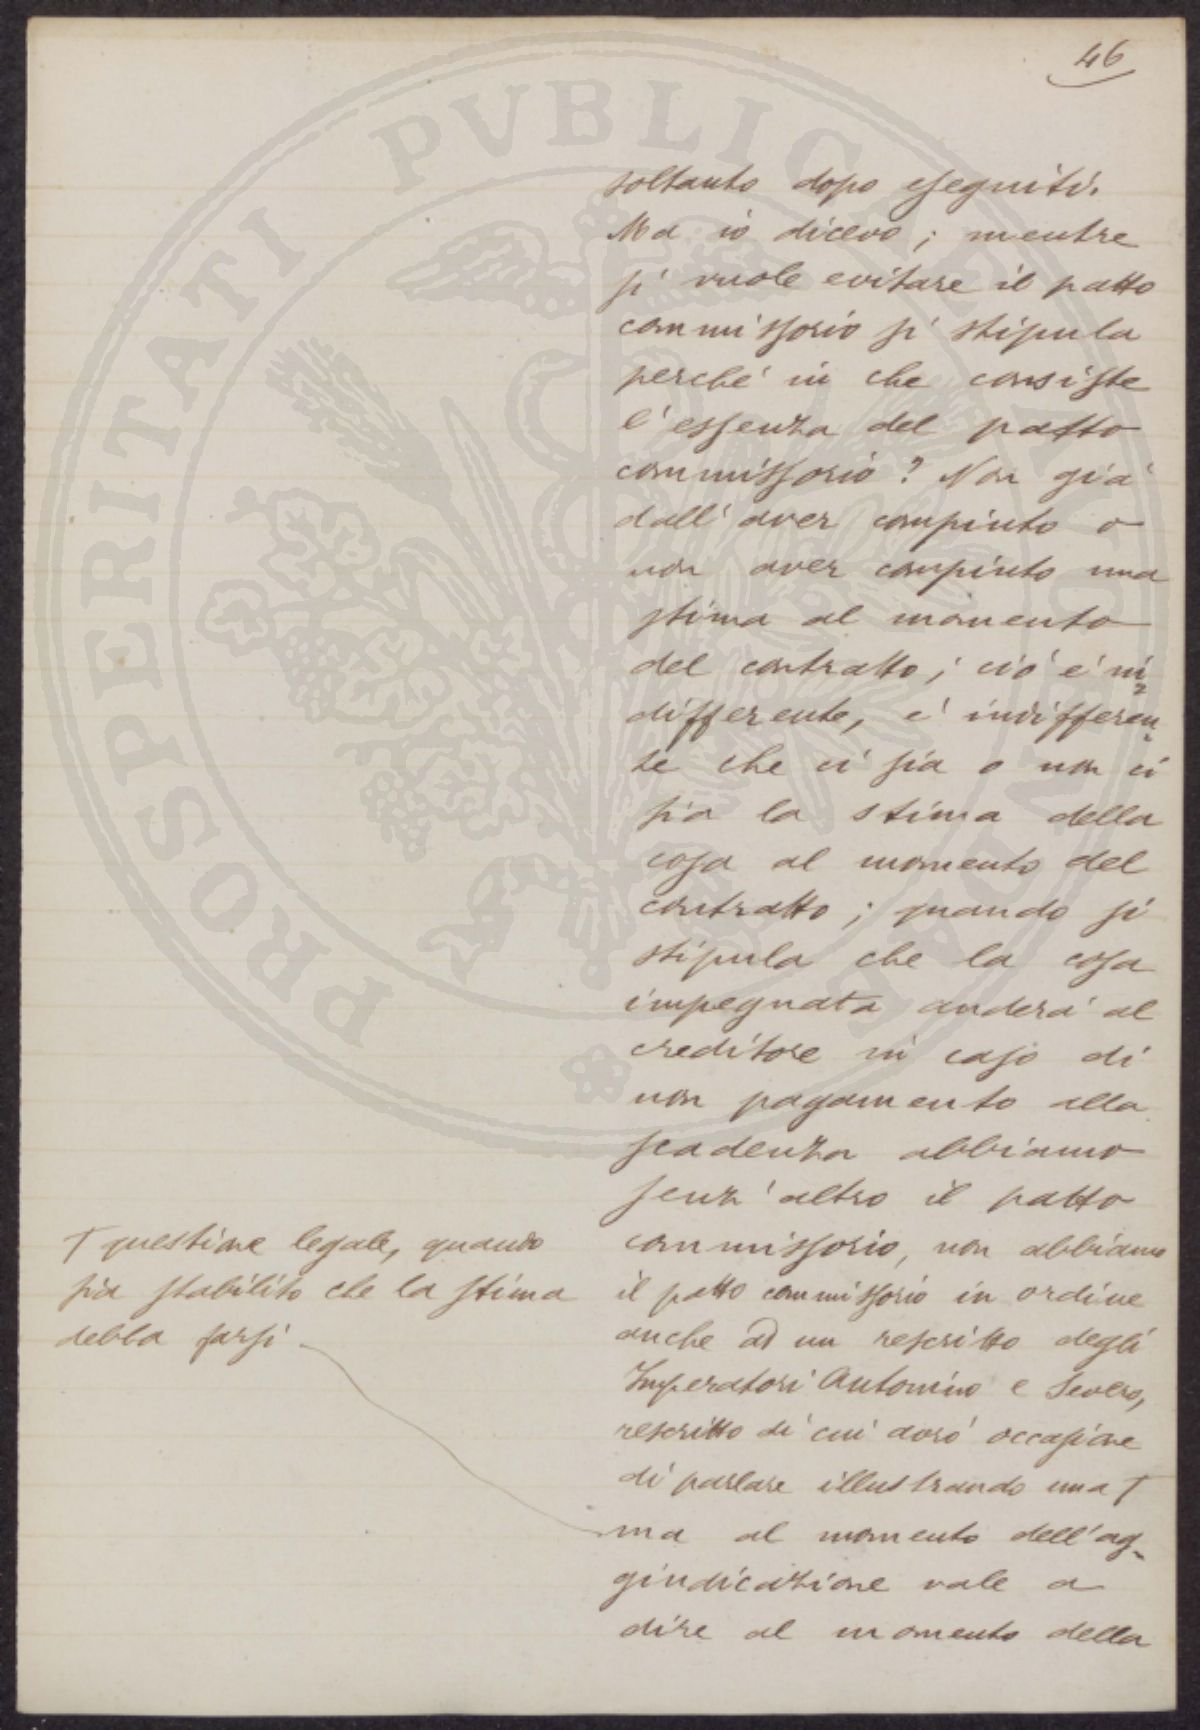 46
soltanto dopo eseguiti.
Ma io dicevo; mentre
si vuole evitare il patto
commissorio si stipula
perché in che consiste
l'essenza del patto
commissorio? Non già
dall'aver compiuto o
non aver compiuto una
stima al momento
del contratto; ciò è in=
differente, è indifferen=
te che ci sia o non ci
sia la stima della
cosa al momento del
contratto; quando si
stipula che la cosa
impegnata anderà al
creditore in caso di
non pagamento alla
scadenza abbiamo
senz'altro il patto
commissorio, non abbiamo
il patto commissorio in ordine
anche ad un rescritto degli
Imperatori Antonino e Severo,
rescritto di cui avrò occasione
di parlare illustrando una T
T questione legale, quando
sia stabilito che la stima
debba farsi
ma al momento dell'ag=
giudicazione vale a
dire al momento della
PROSPERITATI PVBLICAE